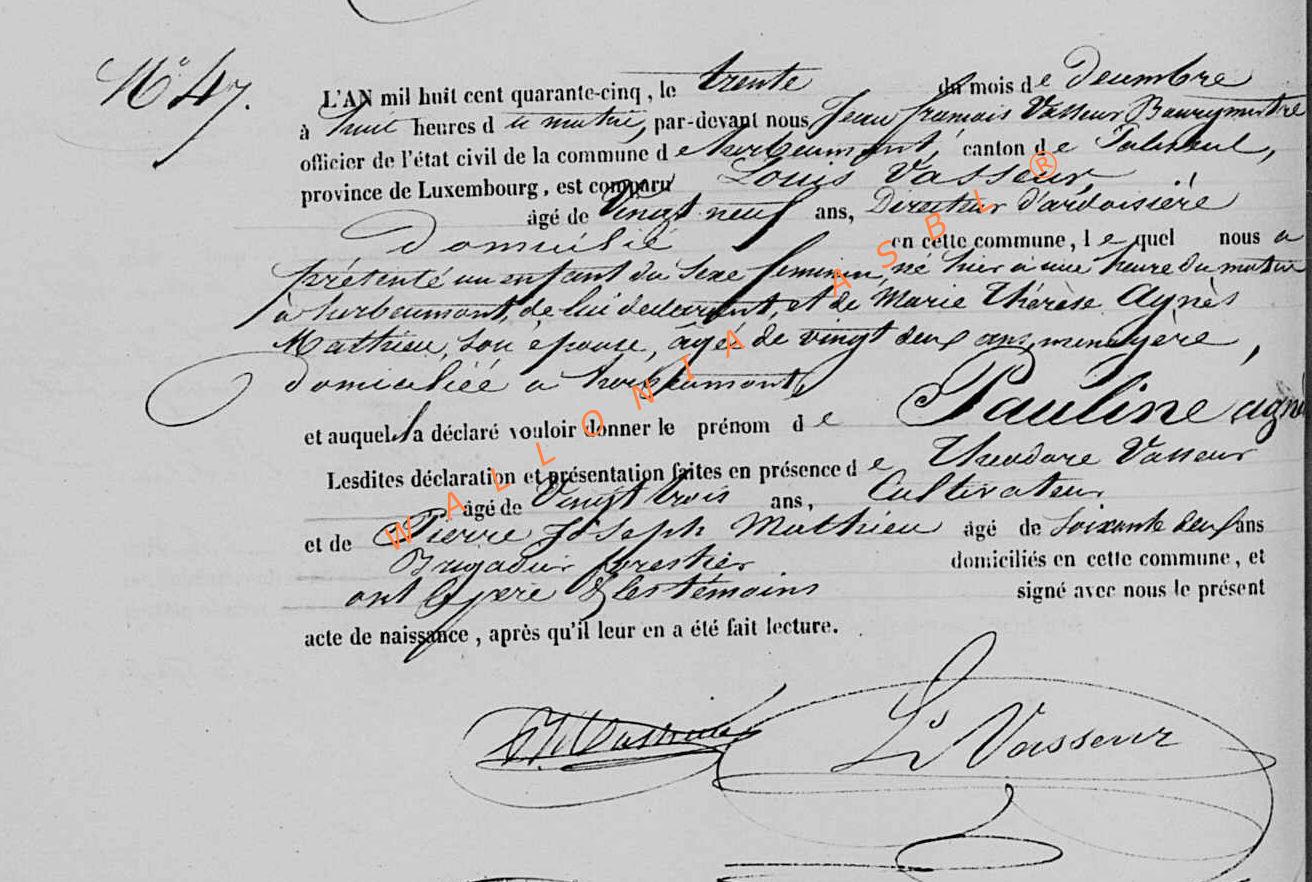 N° 47.
L'AN mil huit cent quarante-cinq, le trente du mois de decembre
à huit heures du matin, par-devant nous Jean francois Vasseur Bourgmestre
officier de l'état civil de la commune d'herbeumont, canton de Paliseul,
province de Luxembourg, est comparu Louis Vasseur,
âgé de Vingt neuf ans, Directeur d'ardoisière
domicilié en cette commune, lequel nous a
présenté un enfant du sexe feminin, né hier à une heure du matin
à herbeumont, de lui declarant, et de Marie Thérèse Agnès
Mathieu, son épouse, âgée de vingt deux ans, menagère,
domiciliée à herbeumont,
et auquel il a déclaré vouloir donner le prénom de Pauline agnès
Lesdites déclaration et présentation faites en présence de Theodore Vasseur
âgé de Vingt trois ans, Cultivateur
et de Pierre Joseph Mathieu âgé de soixante deux ans
Brigadier forestier domiciliés en cette commune, et
ont le père & les témoins signé avec nous le présent
acte de naissance, après qu'il leur en a été fait lecture.
Ls Vasseur
WALLONIA ASBL ®